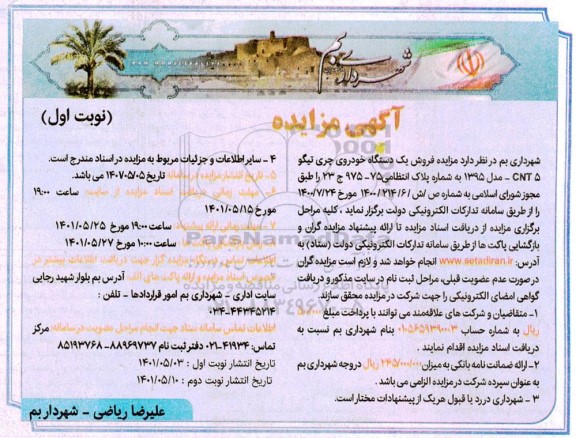 شهرداری بم
آگهی مزایده
(نوبت اول)
شهرداری بم در نظر دارد مزایده فروش یک دستگاه خودروی چری تیگو
CNT 5 - مدل ۱۳۹۵ به شماره پلاک انتظامی ۷۵ - ۹۷۵ ج ۲۳ را طبق
مجوز شورای اسلامی به شماره ص/ش/۱۴۰۰/۲۱۴/۶ مورخ ۱۴۰۰/۷/۲۴
را از طریق سامانه تدارکات الکترونیکی دولت برگزار نماید. کلیه مراحل
برگزاری مزایده از دریافت اسناد مزایده تا ارائه پیشنهاد مزایده گران و
بازگشایی پاکت ها از طریق سامانه تدارکات الکترونیکی دولت (ستاد) به
آدرس: www.setadiran.ir انجام خواهد شد و لازم است مزایده گران
در صورت عدم عضویت قبلی، مراحل ثبت نام در سایت مذکور و دریافت
گواهی امضای الکترونیکی را جهت شرکت در مزایده محقق سازند
۱- متقاضیان و شرکت های علاقه‌مند می توانند با پرداخت مبلغ
ریال به شماره حساب بنام شهرداری بم نسبت به
دریافت اسناد مزایده اقدام نمایند.
۲- ارائه ضمانت نامه بانکی به میزان ۲۴۵/۰۰۰/۰۰۰ ریال در وجه شهرداری بم
به عنوان سپرده شرکت در مزایده الزامی می باشد.
۳ - شهرداری در رد یا قبول هر یک از پیشنهادات مختار است.
۴ - سایر اطلاعات و جزئیات مربوط به مزایده در اسناد مندرج است.
۵- تاریخ انتشار مزایده در سامانه تاریخ ۱۴۰۷/۰۵/۰۵ می باشد.
۶- مهلت زمانی دریافت اسناد مزایده از سایت: ساعت ۱۹:۰۰
مورخ ۱۴۰۱/۰۵/۱۵
۷- مهلت زمانی ارائه پیشنهاد ساعت ۱۹:۰۰ مورخ ۱۴۰۱/۰۵/۲۵
ساعت ۱۰:۰۰ مورخ ۱۴۰۱/۰۵/۲۷
اطلاعات تماس دستگاه مزایده گزار جهت دریافت اطلاعات بیشتر در
خصوص اسناد مزایده و ارائه پاکت های الف: آدرس بم بلوار شهید رجایی
سایت اداری - شهرداری بم امور قراردادها - تلفن:
۰۳۴-۴۴۳۴۵۲۱۴
اطلاعات تماس سامانه ستاد جهت انجام مراحل عضویت در سامانه: مرکز
تماس: ۴۱۹۳۴-۰۲۱ دفتر ثبت نام ۸۸۹۶۹۷۳۷ - ۸۵۱۹۳۷۶۸
تاریخ انتشار نوبت اول: ۱۴۰۱/۰۵/۰۳
تاریخ انتشار نوبت دوم: ۱۴۰۱/۰۵/۱۰
علیرضا ریاضی - شهردار بم